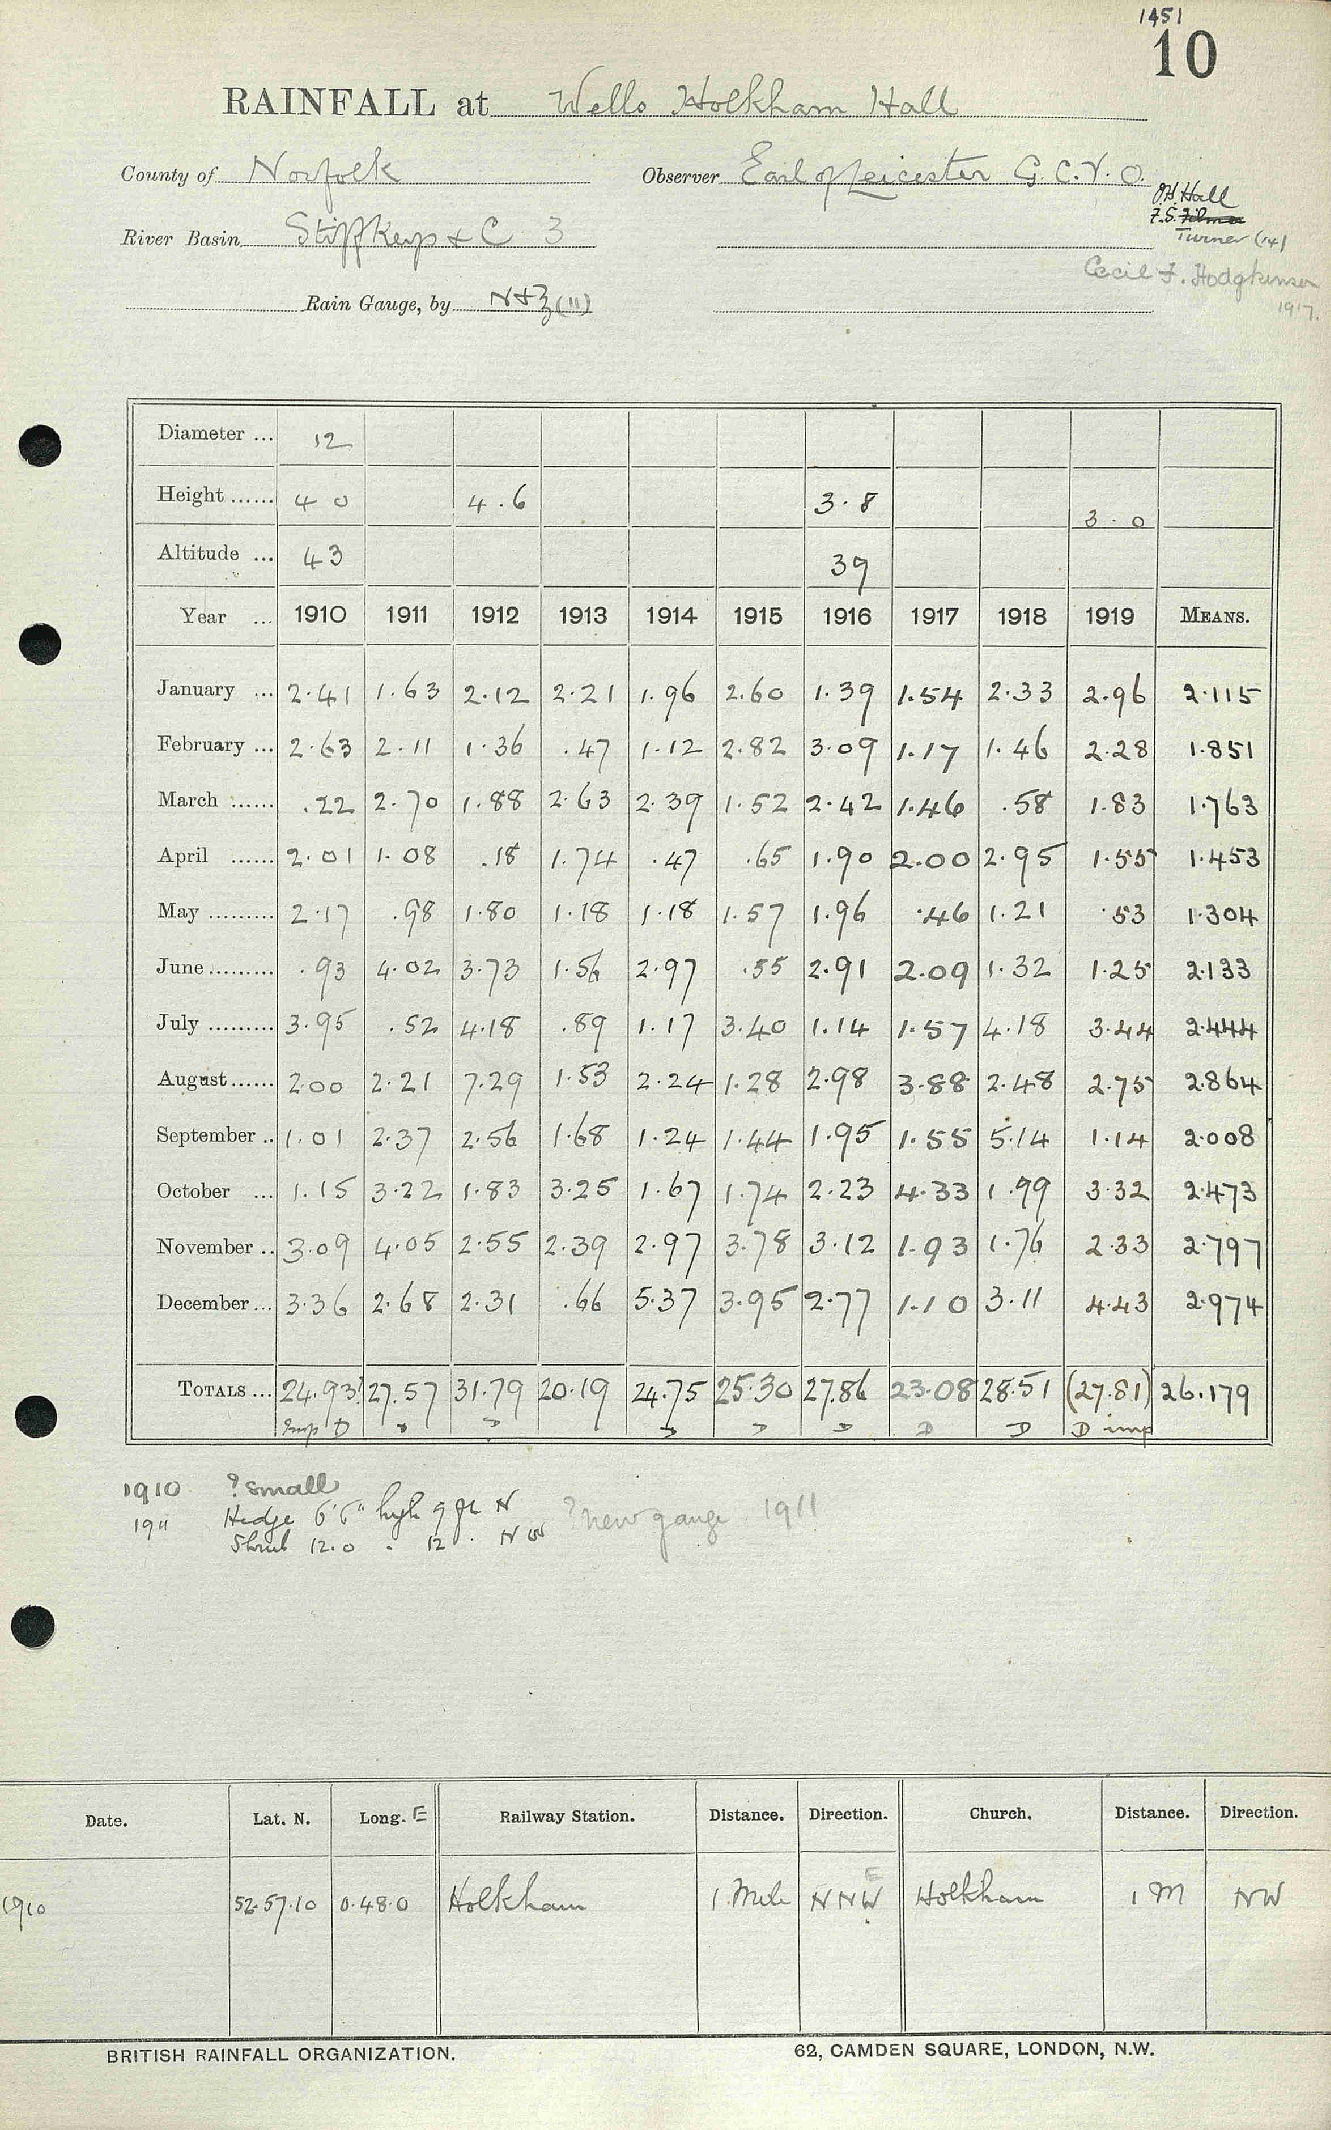 1451
10
RAINFALL at Wells Holkham Hall
County of Norfolk Observer Earl of Leicester G.C.V.O.
O.H. Hall
F.S.
Turner (14)
River Basin Stiffkey & C 3
Cecil F. Hodgkinson
1917.
Rain Gauge, by N+Z (11)
Diameter ... 12
Height ...... 4 0 4.6 3.8 3.0
Altitude ... 43 39
Year ... 1910 1911 1912 1913 1914 1915 1916 1917 1918 1919 MEANS.
January ... 2.41 1.63 2.12 2.21 1.96 2.60 1.39 1.54 2.33 2.96 2.115
February ... 2.63 2.11 1.36 .47 1.12 2.82 3.09 1.17 1.46 2.28 1.851
March ...... .22 2.70 1.88 2.63 2.39 1.52 2.42 1.46 .58 1.83 1.763
April ...... 2.01 1.08 .18 1.74 .47 .65 1.90 2.00 2.95 1.55 1.453
May ......... 2.17 .98 1.80 1.18 1.18 1.57 1.96 .46 1.21 .53 1.304
June ......... .93 4.02 3.73 1.56 2.97 .55 2.91 2.09 1.32 1.25 2.133
July ......... 3.95 .52 4.18 .89 1.17 3.40 1.14 1.57 4.18 3.44 2.444
August ...... 2.00 2.21 7.29 1.53 2.24 1.28 2.98 3.88 2.48 2.75 2.864
September .. 1.01 2.37 2.56 1.68 1.24 1.44 1.95 1.55 5.14 1.14 2.008
October ... 1.15 3.22 1.83 3.25 1.67 1.74 2.23 4.33 1.99 3.32 2.473
November .. 3.09 4.05 2.55 2.39 2.97 3.78 3.12 1.93 1.76 2.33 2.797
December ... 3.36 2.68 2.31 .66 5.37 3.95 2.77 1.10 3.11 4.43 2.974
TOTALS ... 24.93? 27.57 31.79 20.19 24.75 25.30 27.86 23.08 28.51 (27.81) 26.179
Imp D D D D D D D D D imp
1910 ? small
1911 Hedge 6'6" high 9 ft N ? new gauge 1911
Shrub 12.0 " 12 " NW
Date. Lat. N. Long. E Railway Station. Distance. Direction. Church. Distance. Direction.
E
1910 52.57.10 0.48.0 Holkham 1 Mile NNW Holkham 1 M NW
BRITISH RAINFALL ORGANIZATION. 62, CAMDEN SQUARE, LONDON, N.W.